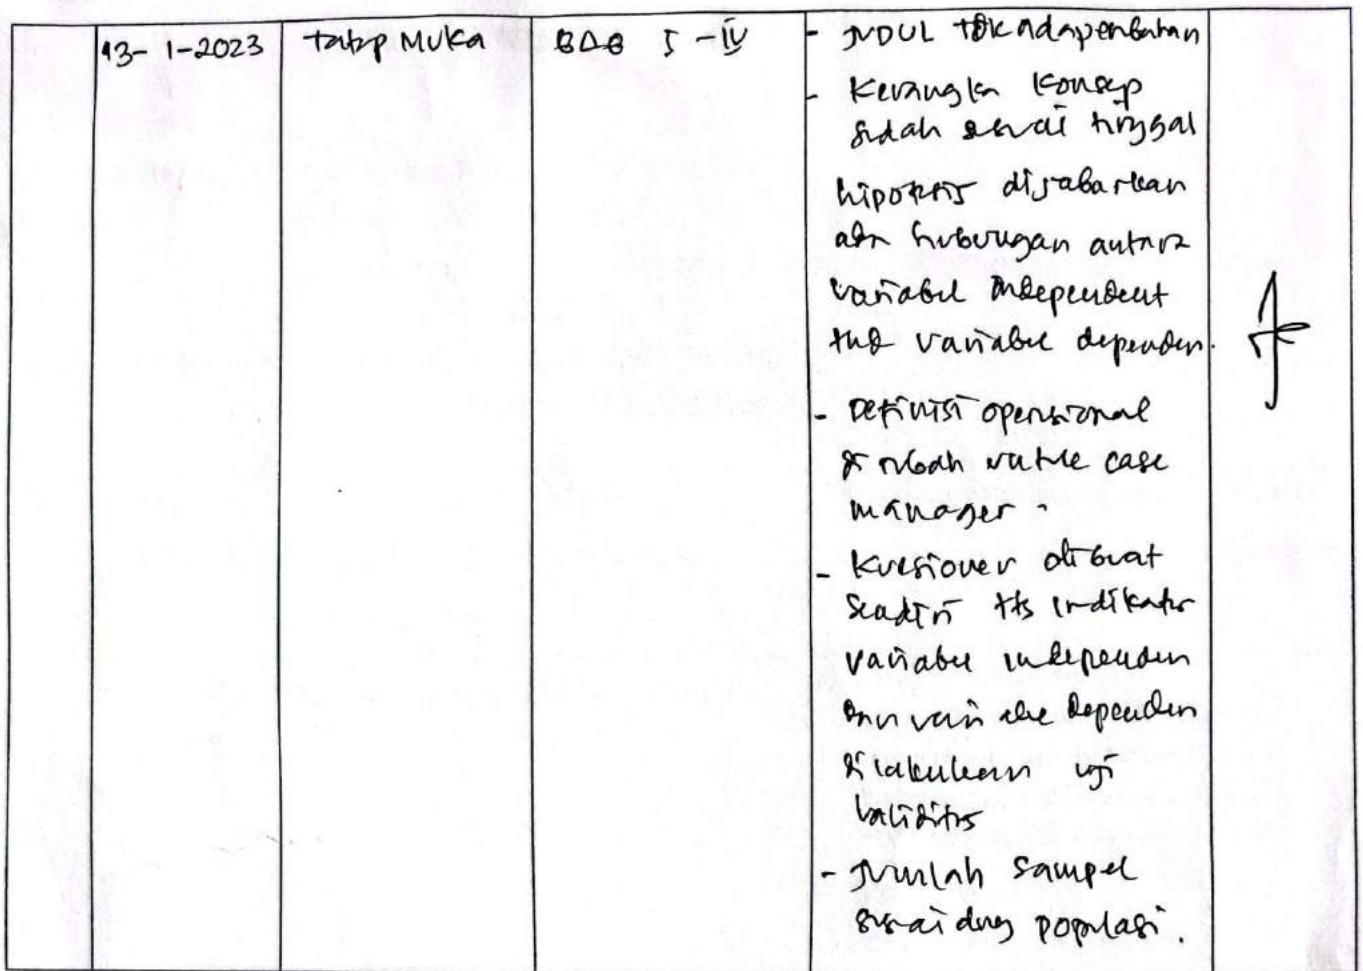 13-1-2023
tatap Muka
BAB I - IV
- JUDUL tdk ada perubahan
- Kerangka Konsep
sudah sesuai tinggal
hipotesis dijabarkan
ada hubungan antara
variabel independent
thd variabel dependen.
- Definisi operasional
di rubah untuk case
manager.
- Kuesioner dibuat
sendiri indikator
variabel independen
dan variabel dependen
dilakukan uji
validitas
- Jumlah Sampel
sesuai dng populasi.